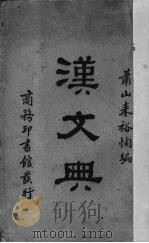 蕭山來裕恂編
漢文典
商務印書館發行